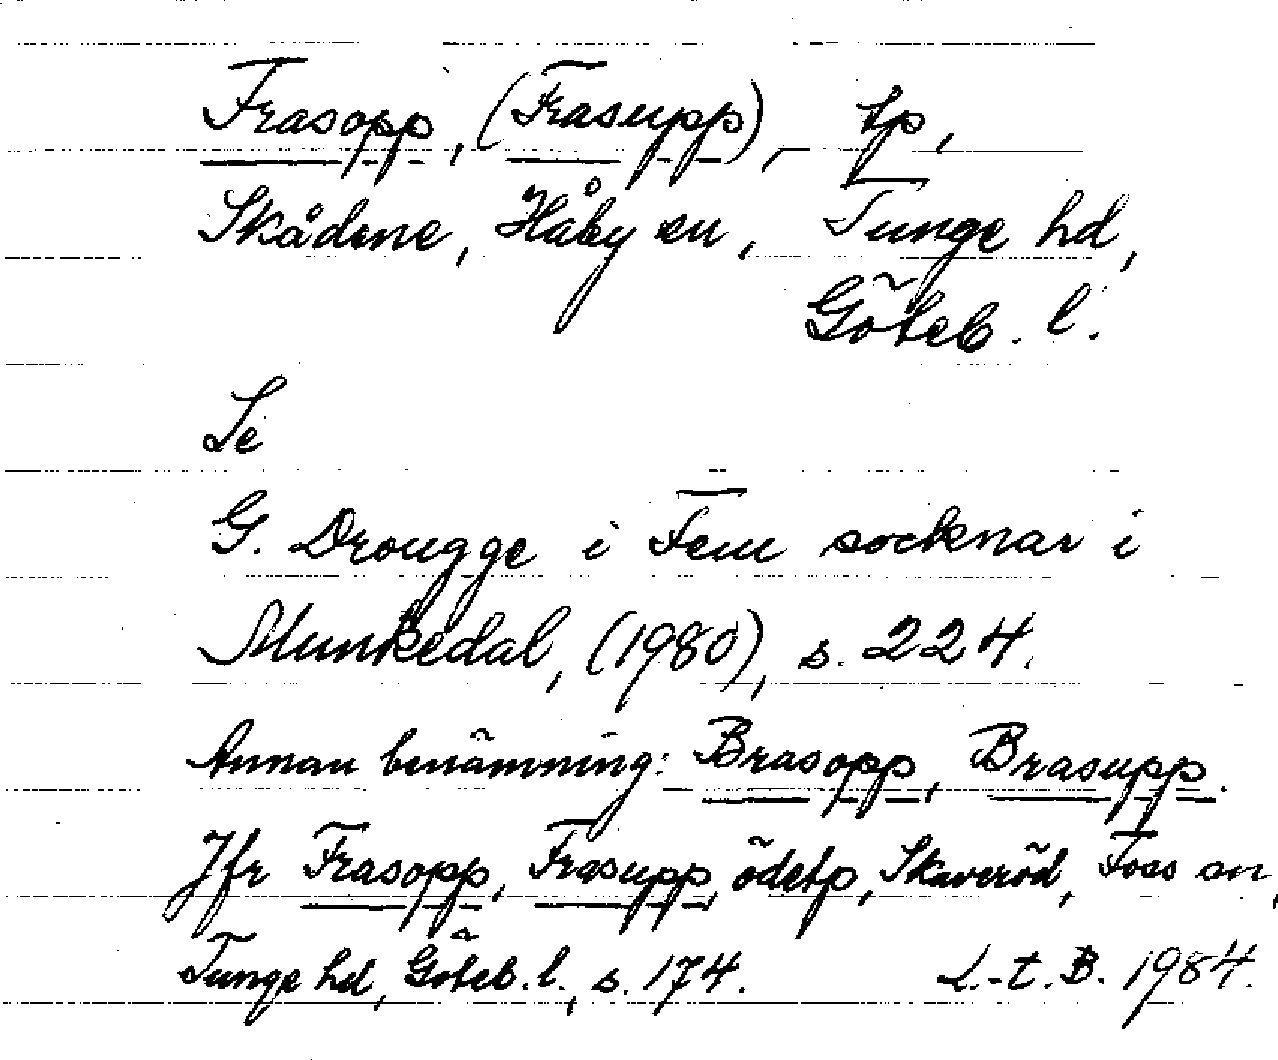 Frasopp, (Frasupp), tp,
Skådene, Håby sn, Tunge hd,
Göteb. l.
Se
G. Drougge i Fem socknar i
Munkedal, (1980), s. 224.
Annan benämning: Brasopp, Brasupp.
Jfr Frasopp, Frasupp, ödetp, Skaveröd, Foss sn,
Tunge hd, Göteb. l., s. 174. L.-t. B. 1984.